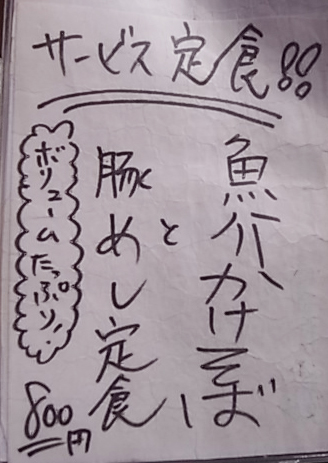 サービス定食!!
魚介かけそば
と
豚めし定食
800円
ボリュームたっぷり!